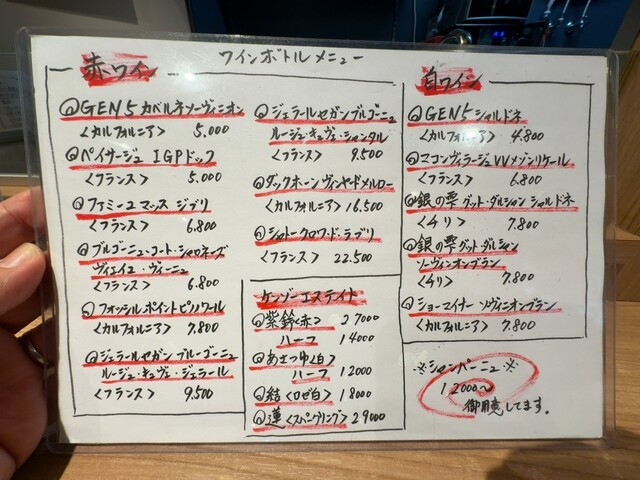 ワインボトルメニュー
赤ワイン
GEN5 カベルネソーヴィニオン
<カルフォルニア> 5.000
ペイサージュ IGPドック
<フランス> 5.000
ファミーユ マッス ジブリ
<フランス> 6.800
ブルゴーニュ・コート・シャロネーズ
ヴィエイユ・ヴィーニュ
<フランス> 6.800
フォッシルポイントピノノワール
<カルフォルニア> 7.800
ジェラールセガン ブルーゴーニュ
ルージュ・キュヴェ・ジェラール
<フランス> 9.500
ジェラールセガンブルゴーニュ
ルージュ・キュヴェ・シャンタル
<フランス> 9.500
ダックホーンヴィンヤードメルロー
<カルフォルニア> 16.500
シャトークロワ・ド・ラブリ
<フランス> 22.500
ケンゾーエステイト
紫鈴<赤> 27000
ハーフ 14000
あさつゆ<白>
ハーフ 12000
結<ロゼ白> 18000
蓮<スパークリング> 29000
白ワイン
GEN5 シャルドネ
<カルフォルニア> 4.800
マコンヴィラージュVVメゾンリケール
<フランス> 6.800
銀の雫グット・ダルジャン シャルドネ
<チリ> 7.800
銀の雫グット・ダルジャン
ソーヴィニオンブラン
<チリ> 7.800
ショーマイナーソヴィニオンブラン
<カルフォルニア> 7.800
※シャンパーニュ※
12000~
御用意してます。